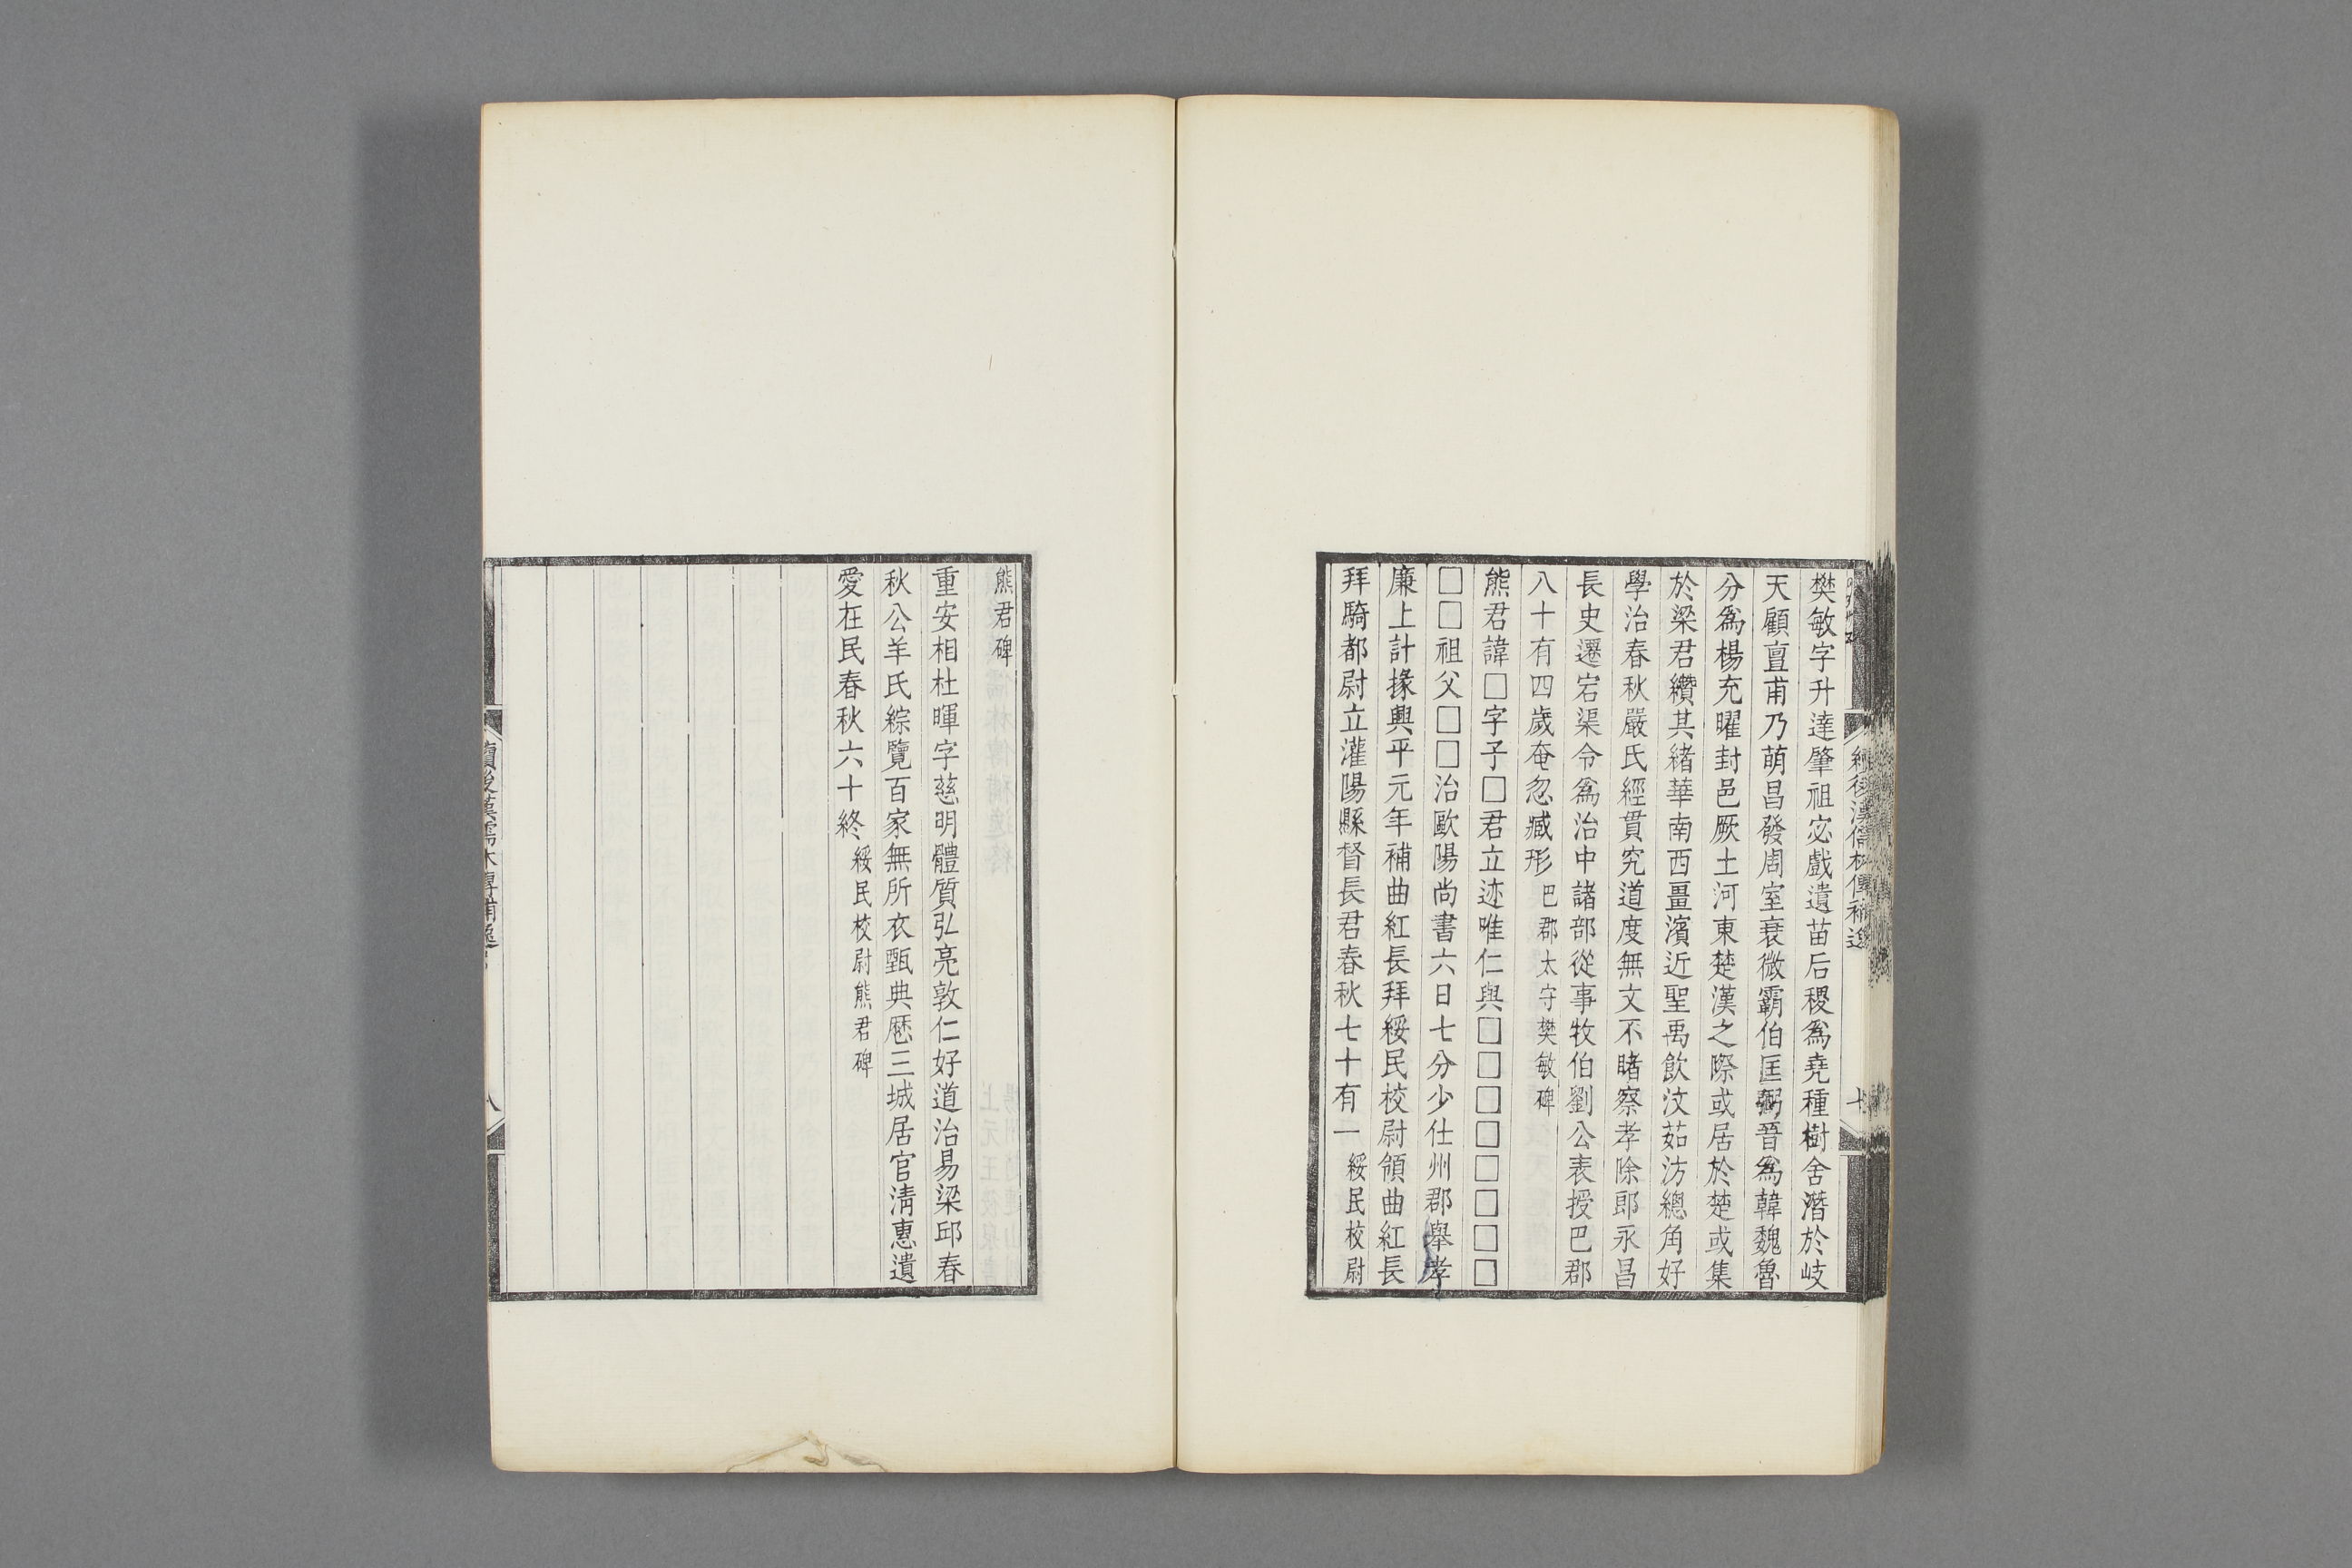 樊敏字升達肇祖宓戲遺苗后稷爲堯種樹舍潛於岐
天顧亶甫乃萌昌發周室衰微霸伯匡弼晉爲韓魏魯
分爲楊充曜封邑厥土河東楚漢之際或居於楚或集
於梁君纘其緒華南西畺濱近聖禹飲汶茹汸總角好
學治春秋嚴氏經貫究道度無文不睹察孝除郎永昌
長史遷宕渠令爲治中諸部從事牧伯劉公表授巴郡
八十有四歲奄忽臧形 巴郡太守樊敏碑
熊君諱□字子□君立迹唯仁與□□□□□□□□
□□祖父□□治歐陽尚書六日七分少仕州郡舉孝
廉上計掾興平元年補曲紅長拜綏民校尉領曲紅長
拜騎都尉立灌陽縣督長君春秋七十有一 綏民校尉
熊君碑
重安相杜暉字慈明體質弘亮敦仁好道治易梁邱春
秋公羊氏綜覽百家無所衣甄典歷三城居官清惠遺
愛在民春秋六十終 綏民校尉熊君碑
續後漢儒林傳補逸